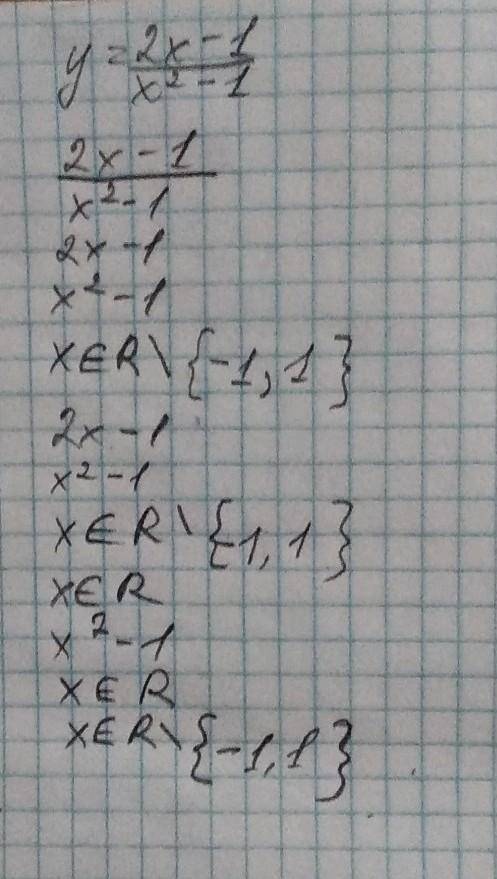 y = 2x - 1 / x² - 1
2x - 1 / x² - 1
2x - 1
x² - 1
x∈R\{-1, 1}
2x - 1
x² - 1
x∈R\{-1, 1}
x∈R
x² - 1
x∈R
x∈R\{-1, 1}